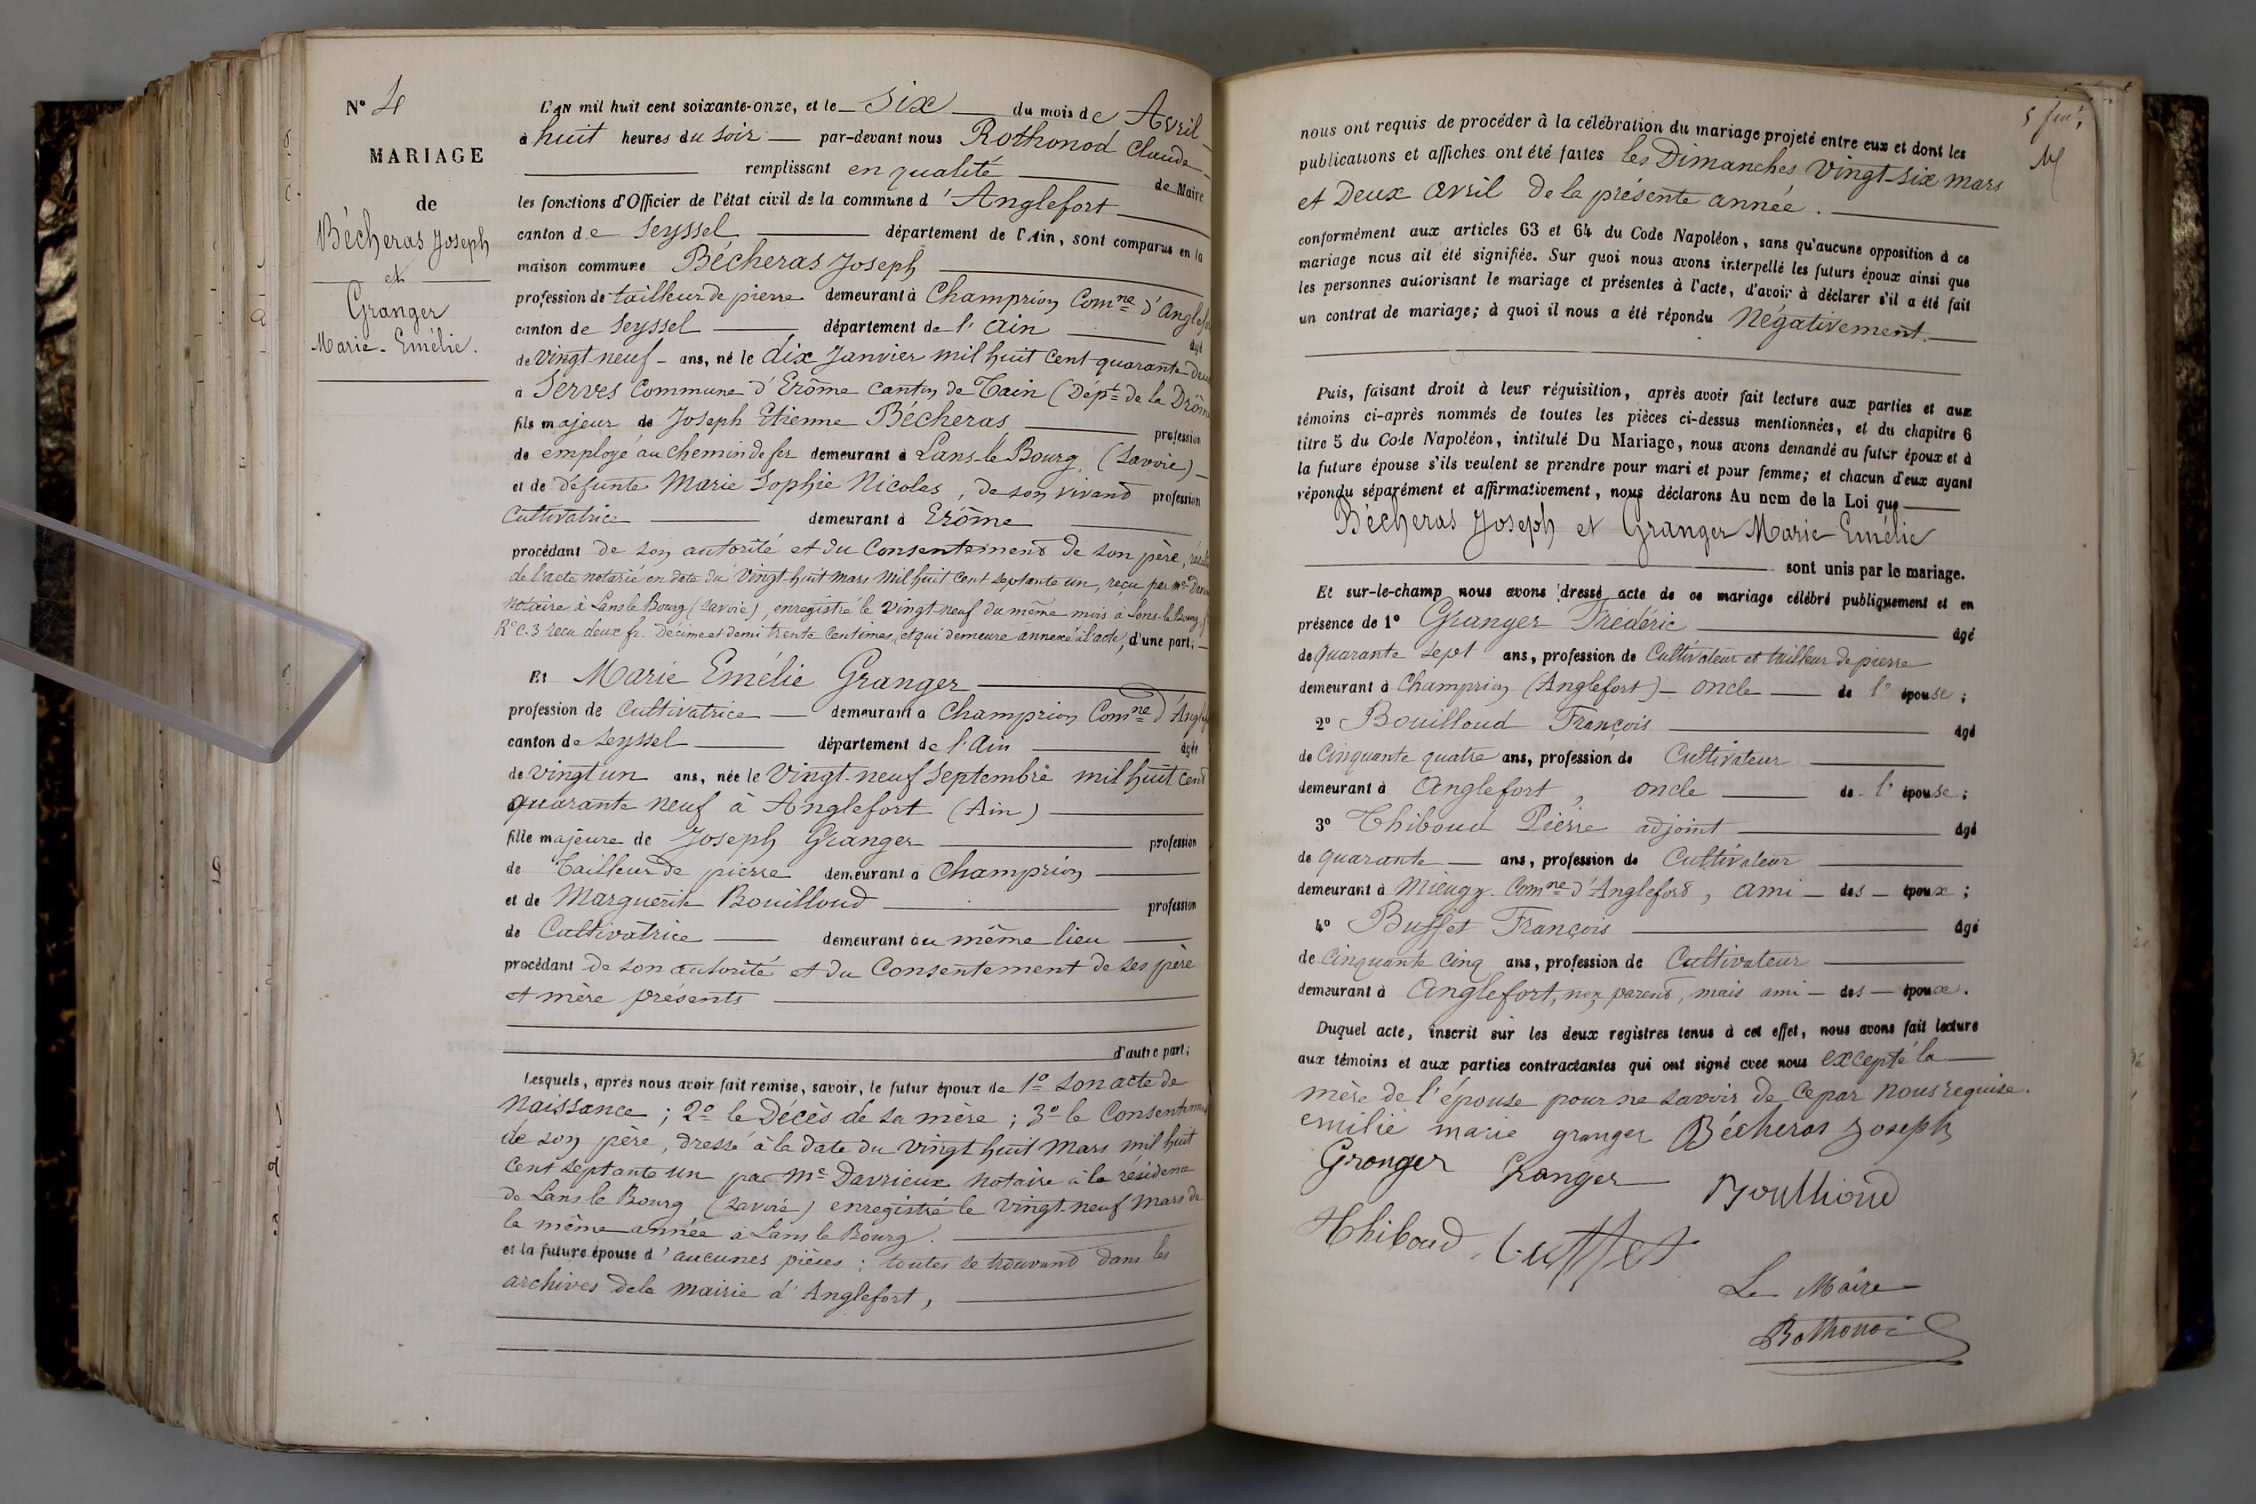 N° 4
MARIAGE
de
Bécheras Joseph
et
Granger
Marie-Emélie.
L'AN mil huit cent soixante-onze, et le six du mois de Avril
à huit heures du soir par-devant nous Rothonod Claude
remplissant en qualité de Maire
les fonctions d'Officier de l'état civil de la commune d'Anglefort
canton de Seyssel département de l'Ain, sont comparus en la
maison commune Bécheras Joseph
profession de tailleur de pierre demeurant à Champrion Comne d'Anglef
canton de Seyssel département de l'ain âgé
de Vingt-neuf ans, né le dix Janvier mil huit cent quarante-deux
à Serves Commune d'Erôme canton de Tain (Dépt de la Drôme
fils majeur de Joseph Etienne Bécheras profession
de employé au chemin de fer demeurant à Lans-le-Bourg (Savoie)
et de défunte Marie Sophie Nicolas, de son vivant profession
Cultivatrice demeurant à Erôme
procédant de son autorité et du Consentement de son père,
de l'acte notarié en date du Vingt-huit mars mil huit cent septante un, reçu par Me
Notaire à Lans le Bourg (Savoie), enregistré le Vingt neuf du même mois à Lans-le-Bourg
R° C. 3 reçu deux fr. Décime et demi trente centimes, et qui demeure annexé à l'acte, d'une part;
Et Marie Emélie Granger
profession de Cultivatrice demeurant à Champrion Comne d'Anglef
canton de Seyssel département de l'Ain âgée
de vingt un ans, née le Vingt-neuf Septembre mil huit cent
quarante neuf à Anglefort (Ain)
fille majeure de Joseph Granger profession
de Tailleur de pierre demeurant à Champrion
et de Marguerite Bouilloud profession
de Cultivatrice demeurant au même lieu
procédant de son autorité et du Consentement de ses père
et mère présents
d'autre part;
Lesquels, après nous avoir fait remise, savoir, le futur époux de 1° son acte de
Naissance; 2° le Décès de sa mère; 3° le Consentement
de son père, dressé à la date du vingt huit Mars mil huit
cent septante un par Me Davrieux Notaire à la résidence
de Lans le Bourg (Savoie) enregistré le vingt-neuf Mars de
la même année à Lans le Bourg.
et la future épouse d'aucunes pièces: toutes se trouvant dans les
archives de la mairie d'Anglefort,
nous ont requis de procéder à la célébration du mariage projeté entre eux et dont les
publications et affiches ont été faites les Dimanches Vingt-six mars
et Deux avril de la présente année.
conformément aux articles 63 et 64 du Code Napoléon, sans qu'aucune opposition à ce
mariage nous ait été signifiée. Sur quoi nous avons interpellé les futurs époux ainsi que
les personnes autorisant le mariage et présentes à l'acte, d'avoir à déclarer s'il a été fait
un contrat de mariage; à quoi il nous a été répondu Négativement.
Puis, faisant droit à leur réquisition, après avoir fait lecture aux parties et aux
témoins ci-après nommés de toutes les pièces ci-dessus mentionnées, et du chapitre 6
titre 5 du Code Napoléon, intitulé Du Mariage, nous avons demandé au futur époux et à
la future épouse s'ils veulent se prendre pour mari et pour femme; et chacun d'eux ayant
répondu séparément et affirmativement, nous déclarons Au nom de la Loi que
Bécheras Joseph et Granger Marie-Emélie
sont unis par le mariage.
Et sur-le-champ nous avons dressé acte de ce mariage célébré publiquement et en
présence de 1° Granger Frédéric âgé
de quarante sept ans, profession de Cultivateur et tailleur de pierre
demeurant à Champrion (Anglefort) oncle de l'épouse;
2° Bouilloud François âgé
de Cinquante quatre ans, profession de Cultivateur
demeurant à Anglefort, oncle de l'épouse;
3° Thiboud Pierre adjoint âgé
de quarante ans, profession de Cultivateur
demeurant à Mieugy Comne d'Anglefort, ami des époux;
4° Buffet François âgé
de Cinquante cinq ans, profession de Cultivateur
demeurant à Anglefort, non parent, mais ami des époux.
Duquel acte, inscrit sur les deux registres tenus à cet effet, nous avons fait lecture
aux témoins et aux parties contractantes qui ont signé avec nous excepté la
mère de l'épouse pour ne savoir de ce par nous requise.
emilie marie granger Bécheras Joseph
Granger Granger Bouilloud
Thiboud Buffet
Le Maire
Rothonod